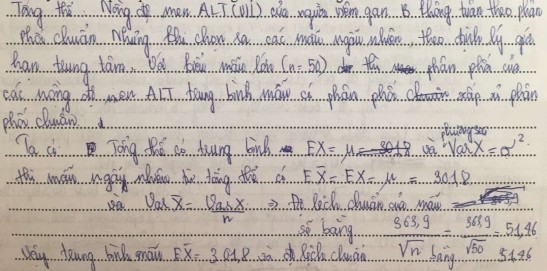 Tổng thể. Nồng độ men ALT (U/l) của người viêm gan B không tuân theo phân
phối chuẩn. Nhưng khi chọn ra các mẫu ngẫu nhiên, theo định lý giới
hạn trung tâm, Với kiểu mẫu lớn (n = 50) thì phân phối của
các nồng độ men ALT trung bình mẫu có phân phối xấp xỉ phân
phối chuẩn.
Ta có Tổng thể có trung bình EX = μ = 301,8 và phương sai VarX = σ².
thì mẫu ngẫu nhiên từ tổng thể có EX̄ = EX = μ = 301,8
và VarX̄ = VarX / n ⇒ Độ lệch chuẩn của mẫu
sẽ bằng 363,9 / √n = 363,9 / √50 = 51,46
Vậy trung bình mẫu EX̄ = 301,8 và độ lệch chuẩn bằng 51,46